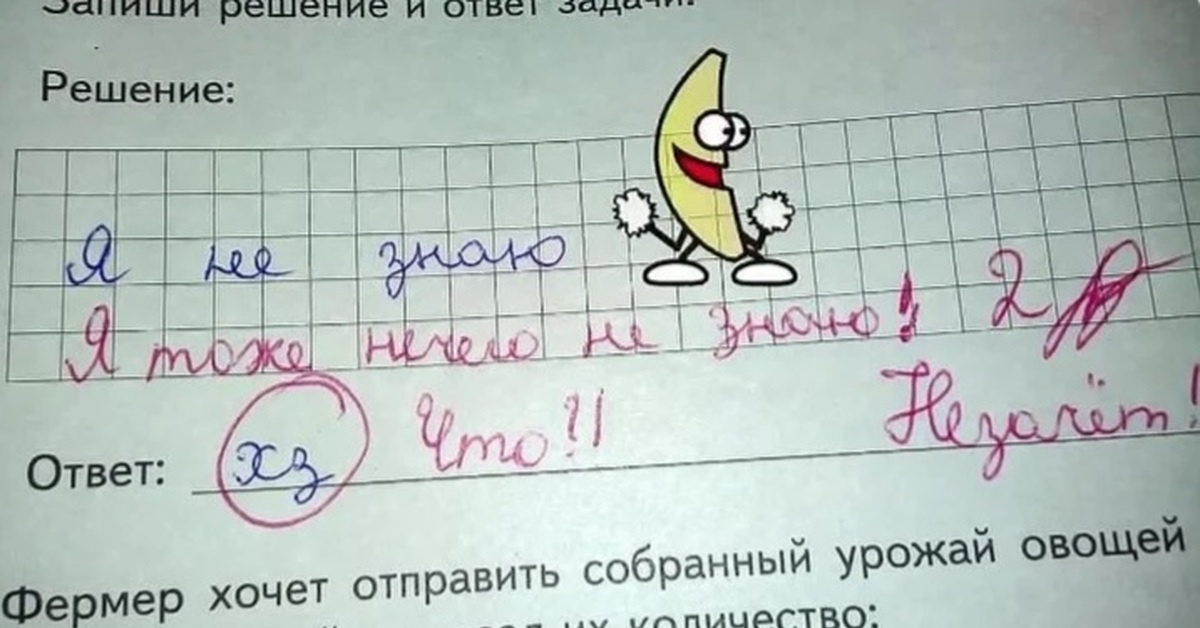 Запиши решение и ответ задачи.
Решение:
Я не знаю
Я тоже нечего не знаю! 2
Ответ: хз Что!! Незачёт!
Фермер хочет отправить собранный урожай овощей
их количество: